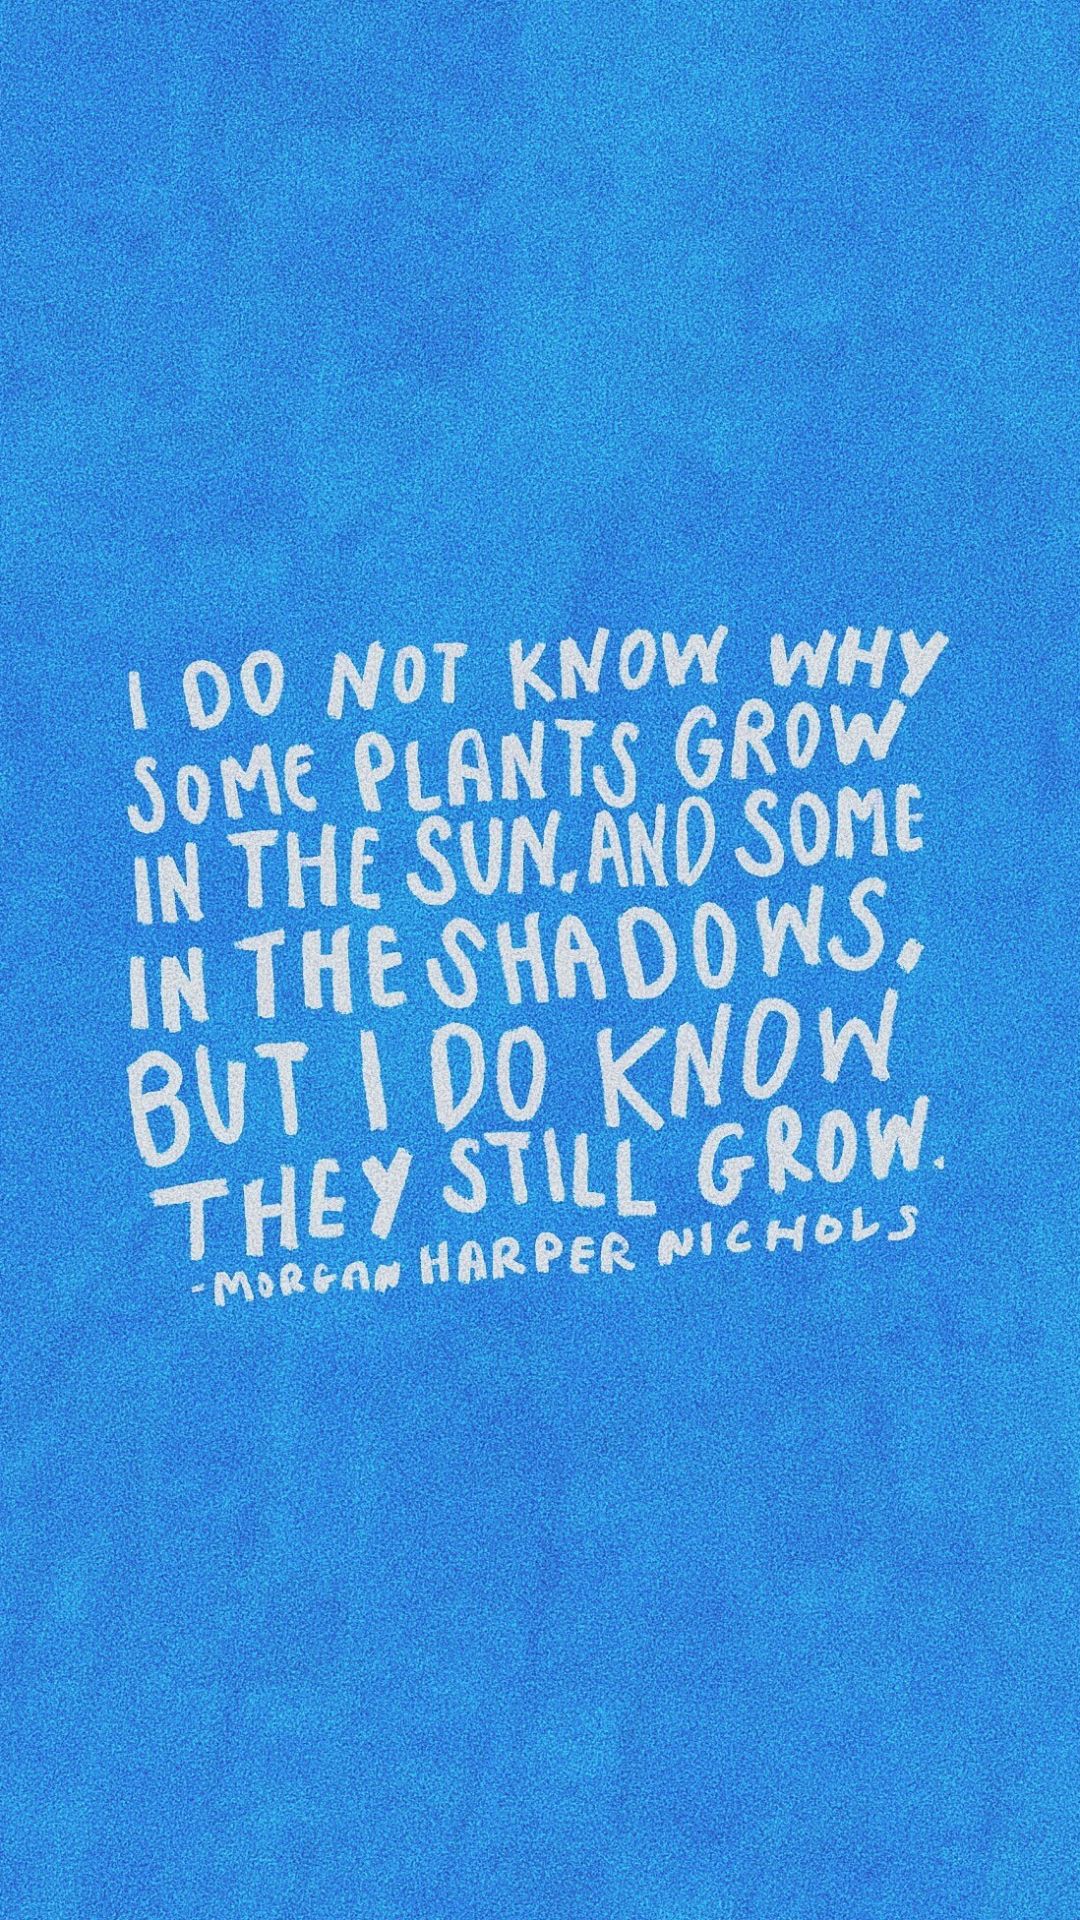 I DO NOT KNOW WHY
SOME PLANTS GROW
IN THE SUN, AND SOME
IN THE SHADOWS,
BUT I DO KNOW
THEY STILL GROW.
-MORGAN HARPER NICHOLS